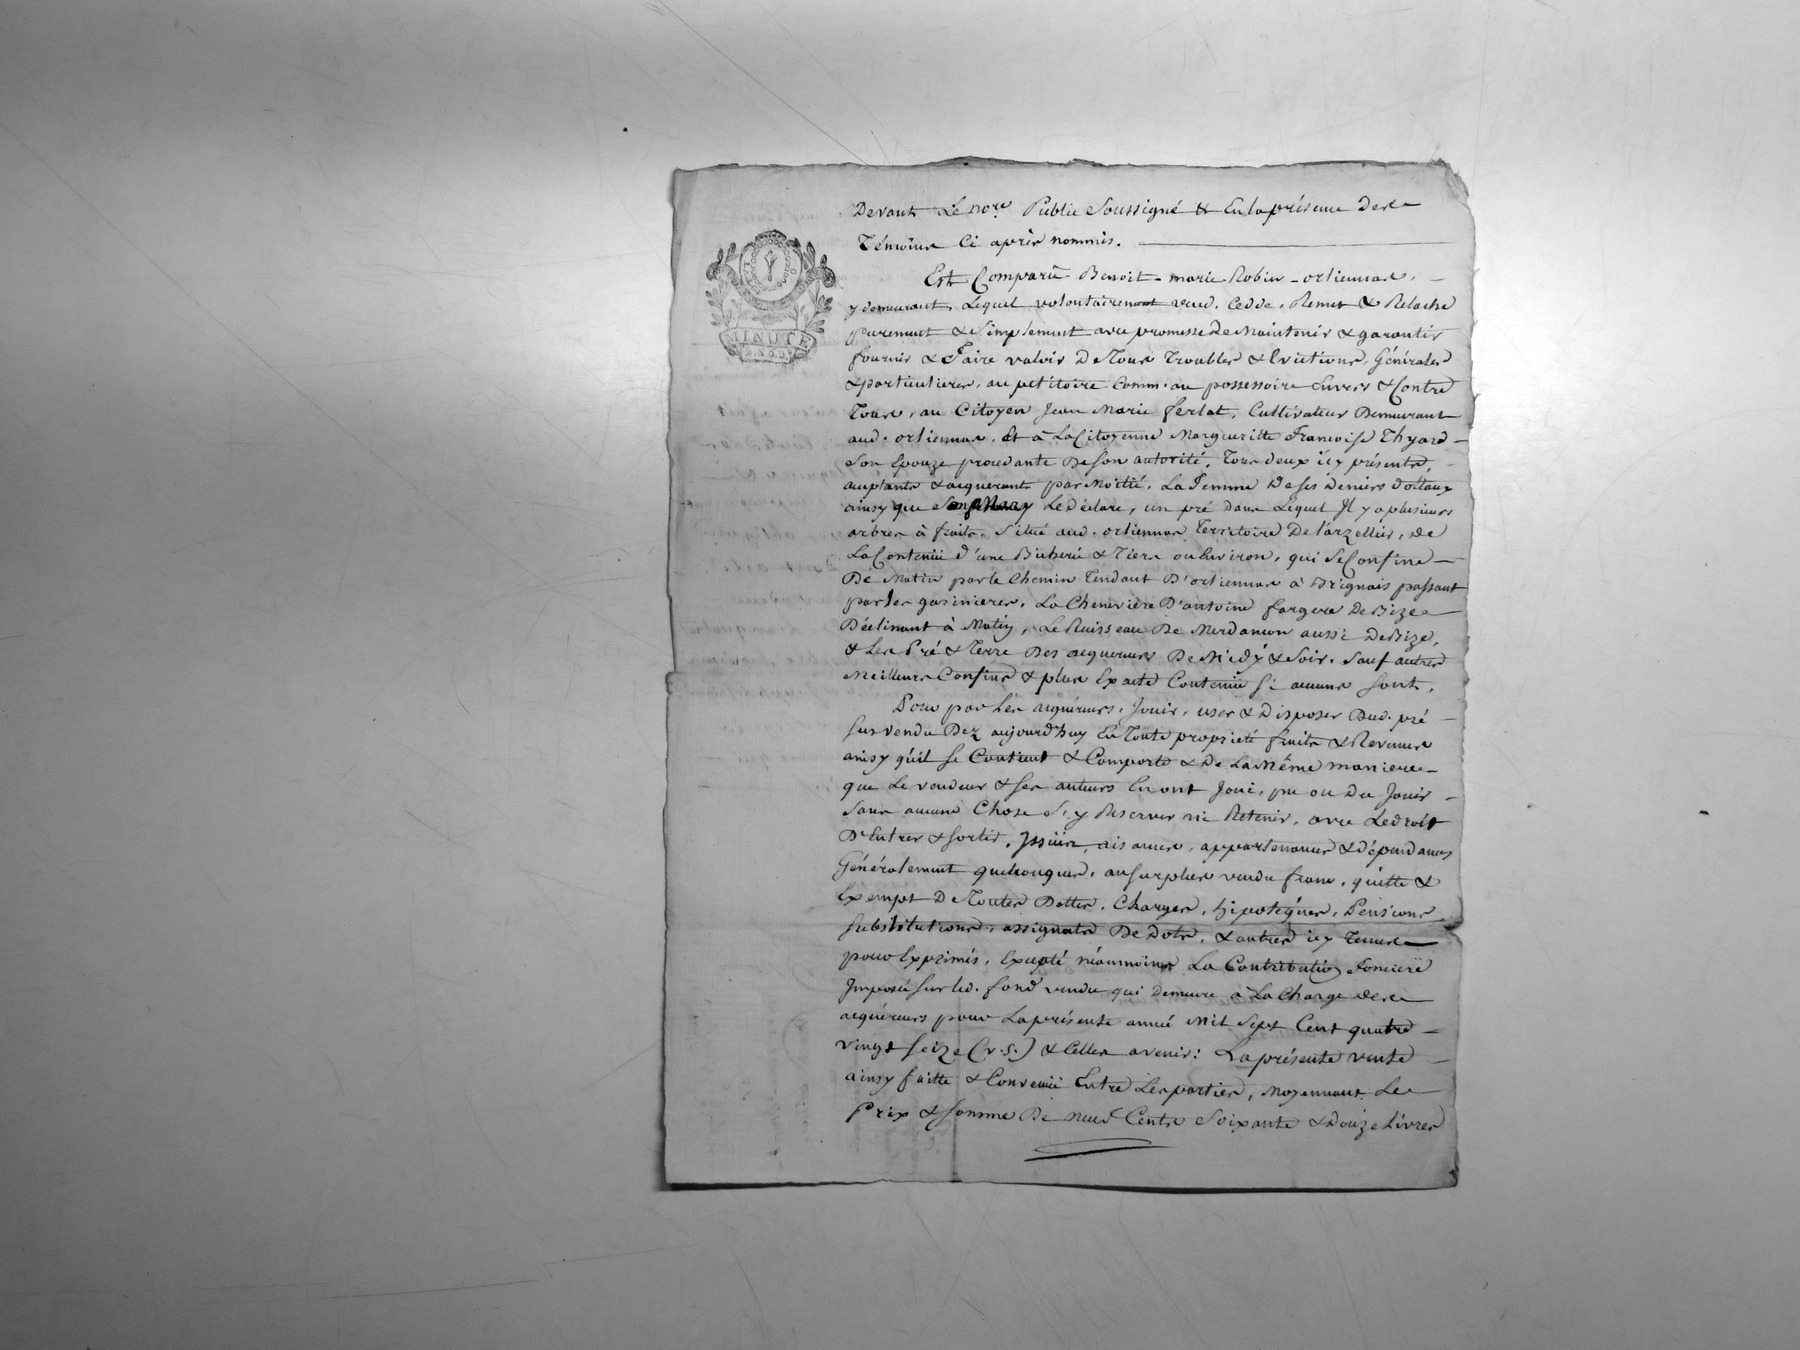 Devant Le no.re Public Soussigné & En la présence des
Témoins Ci après nommés.
Est Comparû Benoit-marie Robin-orliennas,
y demeurant, Lequel volontairement vend, Cedde, Remet & Relache
purement & Simplement avec promesse de Maintenir & garantir
fournir & Faire valoir De Tous Troubles & Evictions, Générales
& particulieres, au petitoire comm. au possessoire Envers & Contre
Tous, au Citoyen Jean Marie ferlat, Cultivateur Demeurant
aud. orliennas, Et à La Citoyenne Margueritte Francoise Thyard
Son Epouze procedante De son autorité, Tous deux icy présents,
acceptants & acquerants par Moitié, La Femme De ses Deniers dottaux
ainsy que Son Mary Le déclare, un pré Dans Lequel Il y a plusieurs
arbres à fruits, Situé aud. orliennas, Territoire De l'arzellier, de
La Contenüe d'une Bicherée & Tiers ou Environ, qui Se Confine
De Matin par le Chemin Tendant D'orliennas à Brignais passant
par les gasinieres, La Cheneviere D'antoine fargere De Bize
Déclinant à Matin, Le Ruisseau De Merdanson aussi De Bize,
& Les Pré & Terre Des acquereurs De Midÿ & Soir. Sauf autres
Meilleurs Confins & plus Exacte Contenüe si aucuns sont,
Pour par Les acquéreurs, Jouir, user & Disposer Dud. pré
sus vendu Dez aujourd'huy En Toute propriété fruits & Revenus
ainsy qu'il se Contient & Comporte & De La Même maniere
que Le vendeur & ses auteurs En ont Joui, pu ou Du Jouir
Sans aucune Chose S'y Reserver ni Retenir, avec Le droit
D'Entrer & sortir, Issües, aisances, appartenances & dépendances
Généralement quelconques, au surplus vendu franc, quitte &
Exempt De Toutes Dettes, Charges, hipotéques, Pensions
substitutions, assignats De Dots, & autres icy Tenus
pour Exprimés, Excepté néanmoins La Contribution Fonciere
Imposée sur led. fond vendu qui Demeure à La Charge des
acquéreurs pour La présente année Mil Sept Cent quatre
vingt seize (v.s.) & Celles avenir: La présente vente
ainsy faitte & Convenüe Entre Les parties, Moyennant Le
Prix & somme De neuf Cents Soixante & Douze Livres
MINUTE